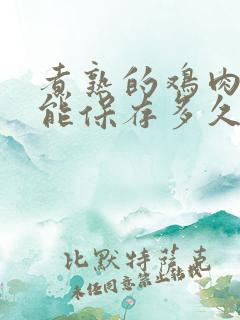 煮熟的鸡肉
能保存多久
比默特萨克
未任同意禁止转载